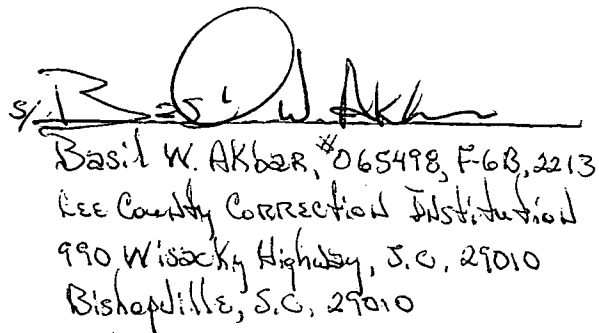 s/ Basil W. Akbar
Basil W. Akbar, #065498, F-6B, 2213
Lee County Correction Institution
990 Wisacky Highway, S.C. 29010
Bishopville, S.C. 29010